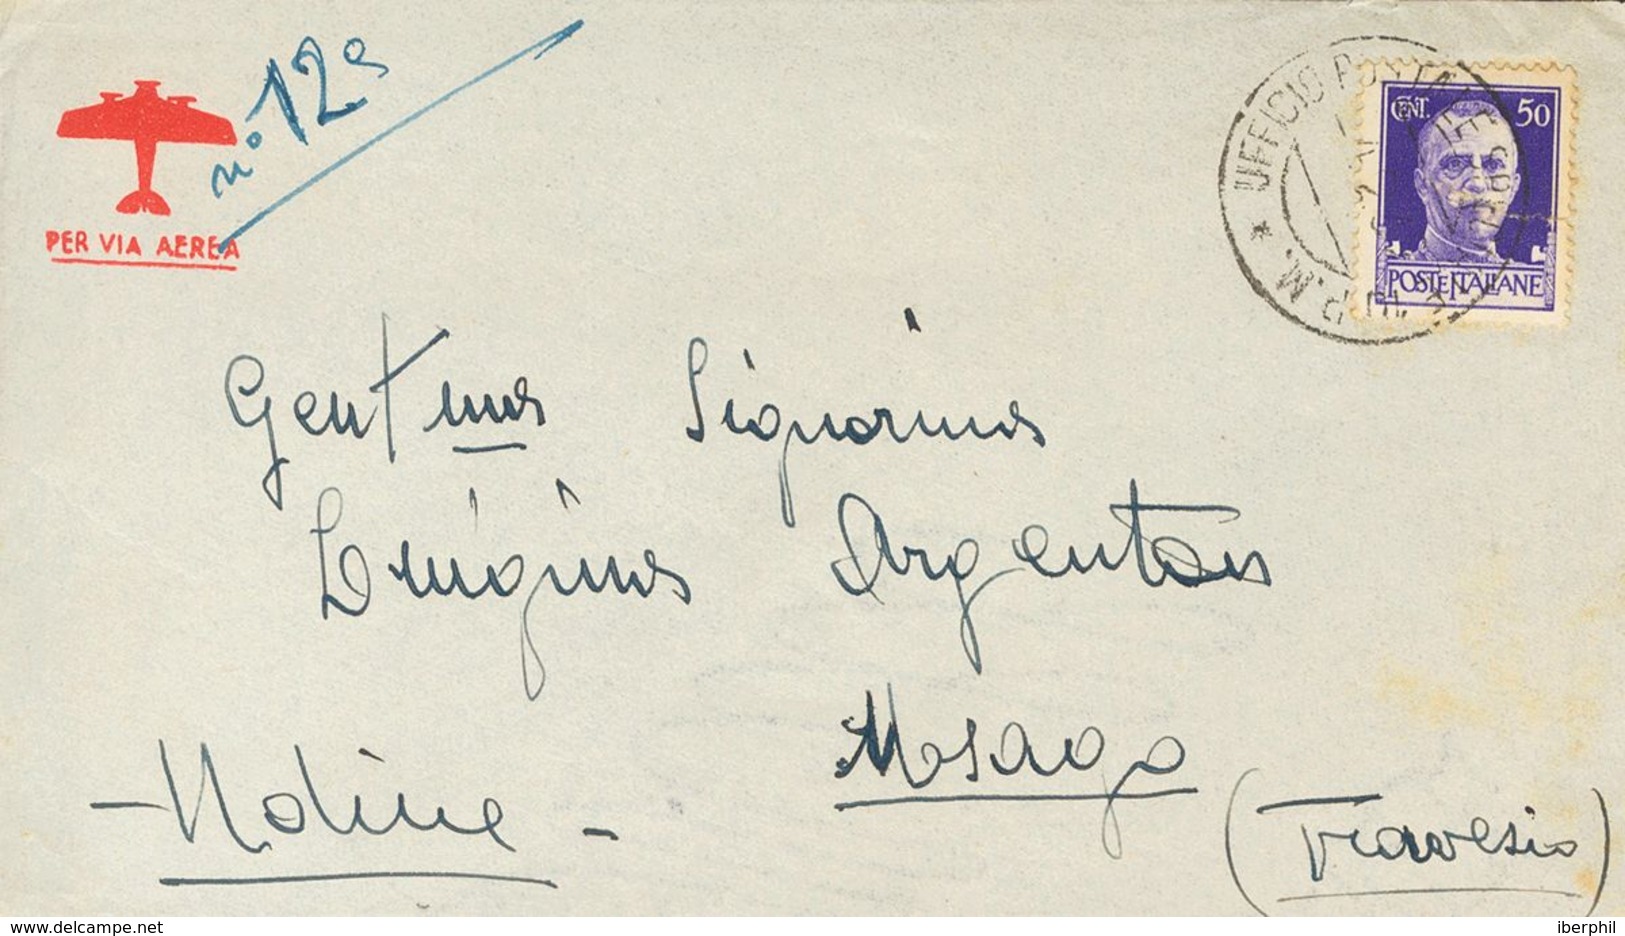 n° 12a
PER VIA AEREA
UFFICIO POSTALE
P.M.
CENT. 50
POSTE ITALIANE
Gent ma Signorina
Luigina Argenton
Usago
(Travesio)
- Udine -
© www.delcampe.net
iberphil